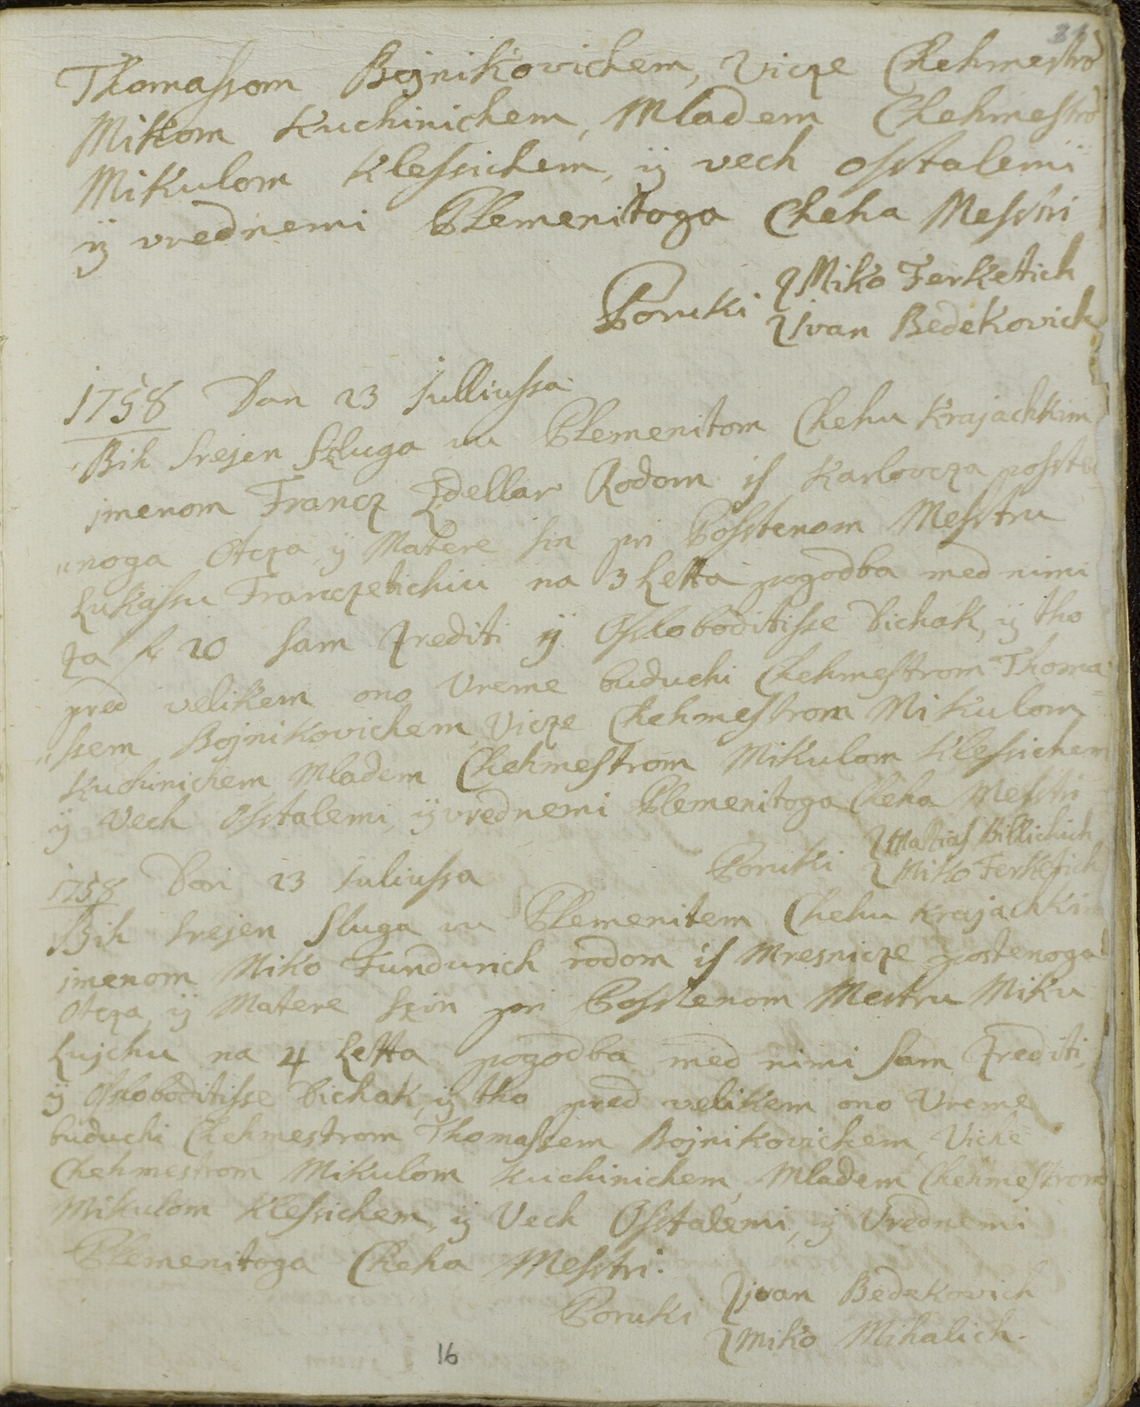 Thomassom Bojnikovichem, Vicze Chehmestro
Mikom Kuchinichem, Mladem Chehmestro
Mikulom Klessichem, ÿ vech osstalemi
ÿ vrednemi Plemenitoga Cheha Messtri
Poruki Miko Ferketich
Ivan Bedekovich
1758 Dan 23 Iulliussa
Bih Srejen Szluga vu Plemenitom Chehu Krajachkim
imenom Francz Zdellar Rodom is Karlovcza posste
noga Otcza ÿ Matere sin pri Posstenom Messtru
Lukassu Franczetichiu na 3 Letta pogodba med nimi
za f 20 sam Zrediti ÿ Ossloboditisse Dichak, ÿ tho
pred velikem ono Vreme buduchi Chehmestrom Thoma
ssem Bojnikovichem, Vicze Chehmestrom Mikulom
Kuchinichem Mladem Chehmestrom Mikulom Klessichem
ÿ Vech Osstalemi, ÿ vrednemi Plemenitoga Cheha Messtri
Poruki Matias Billichich
Miko Ferketich
1758 Dan 23 Iuliussa
Bih Srejen Sluga vu Plemenitem Chehu Krajachkim
imenom Miko Fundurich rodom is Mresnicze postenoga
Otcza ÿ Matere Szin pri Posstenom Mestru Miku
Lujchu na 4 Letta pogodba med nimi sam Zrediti,
ÿ Ossloboditisse Dichak, ÿ tho pred velikem ono Vreme
buduchi Chehmestrom Thomassem Bojnikovichem, Viche
Chehmestrom Mikulom Kuchinichem, Mladem Chehmestrom
Mikulom Klessichem, ÿ Vech Osstalemi, ÿ Vrednemi
Plemenitoga Cheha Messtri.
Poruki Ivan Bedekovich
Miko Mihalich.
16